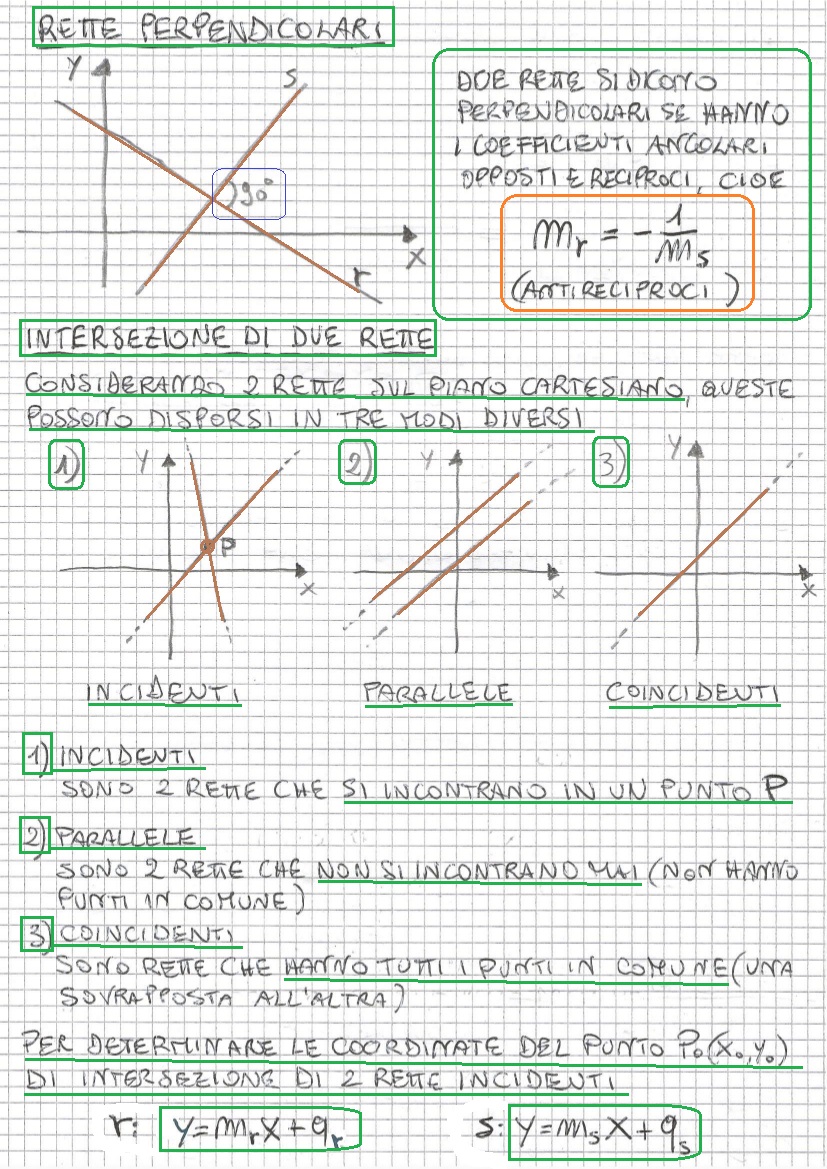 RETTE PERPENDICOLARI
Y
S
90°
X
r
DUE RETTE SI DICONO
PERPENDICOLARI SE HANNO
I COEFFICIENTI ANGOLARI
OPPOSTI E RECIPROCI, CIOE
m_r = - 1/m_s
(ANTIRECIPROCI)
INTERSEZIONE DI DUE RETTE
CONSIDERANDO 2 RETTE SUL PIANO CARTESIANO, QUESTE
POSSONO DISPORSI IN TRE MODI DIVERSI
1) Y P X
2) Y X
3) Y X
INCIDENTI PARALLELE COINCIDENTI
1) INCIDENTI
SONO 2 RETTE CHE SI INCONTRANO IN UN PUNTO P
2) PARALLELE
SONO 2 RETTE CHE NON SI INCONTRANO MAI (NON HANNO
PUNTI IN COMUNE)
3) COINCIDENTI
SONO RETTE CHE HANNO TUTTI I PUNTI IN COMUNE (UNA
SOVRAPPOSTA ALL'ALTRA)
PER DETERMINARE LE COORDINATE DEL PUNTO P₀(X₀,Y₀)
DI INTERSEZIONE DI 2 RETTE INCIDENTI
r: Y=m_rX+q_r s: Y=m_sX+q_s